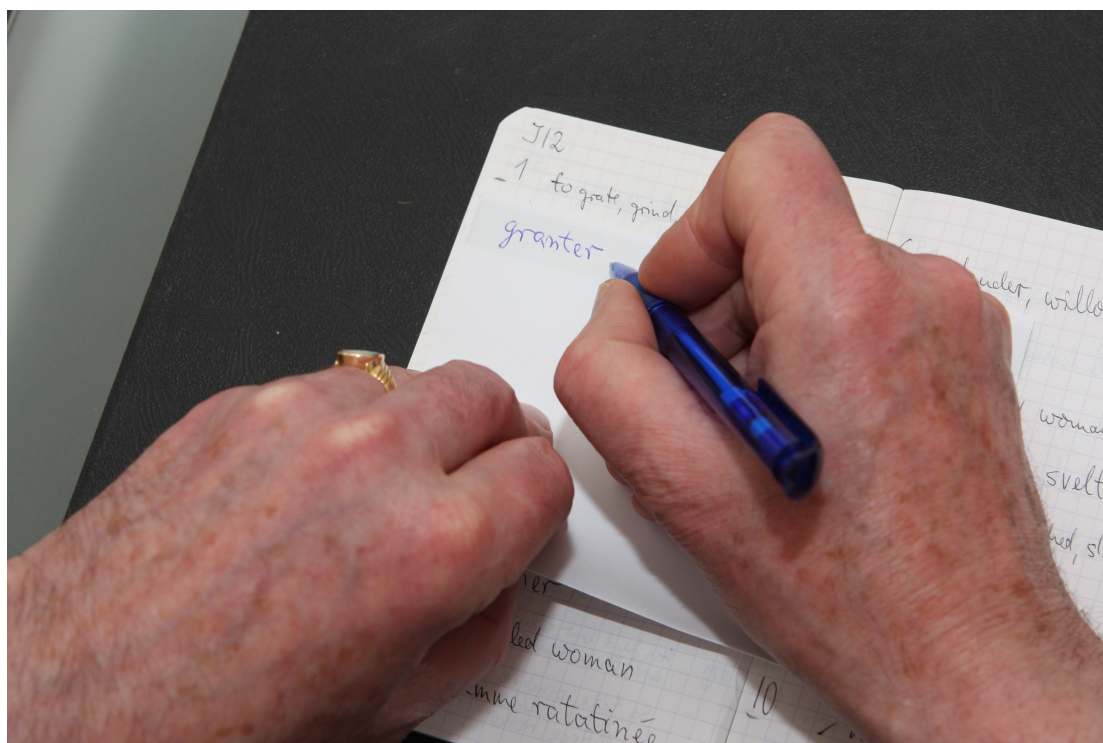 J/2
1 to grate, grind,
granter
willo
woman
svelt
led woman
mme ratatinée
10